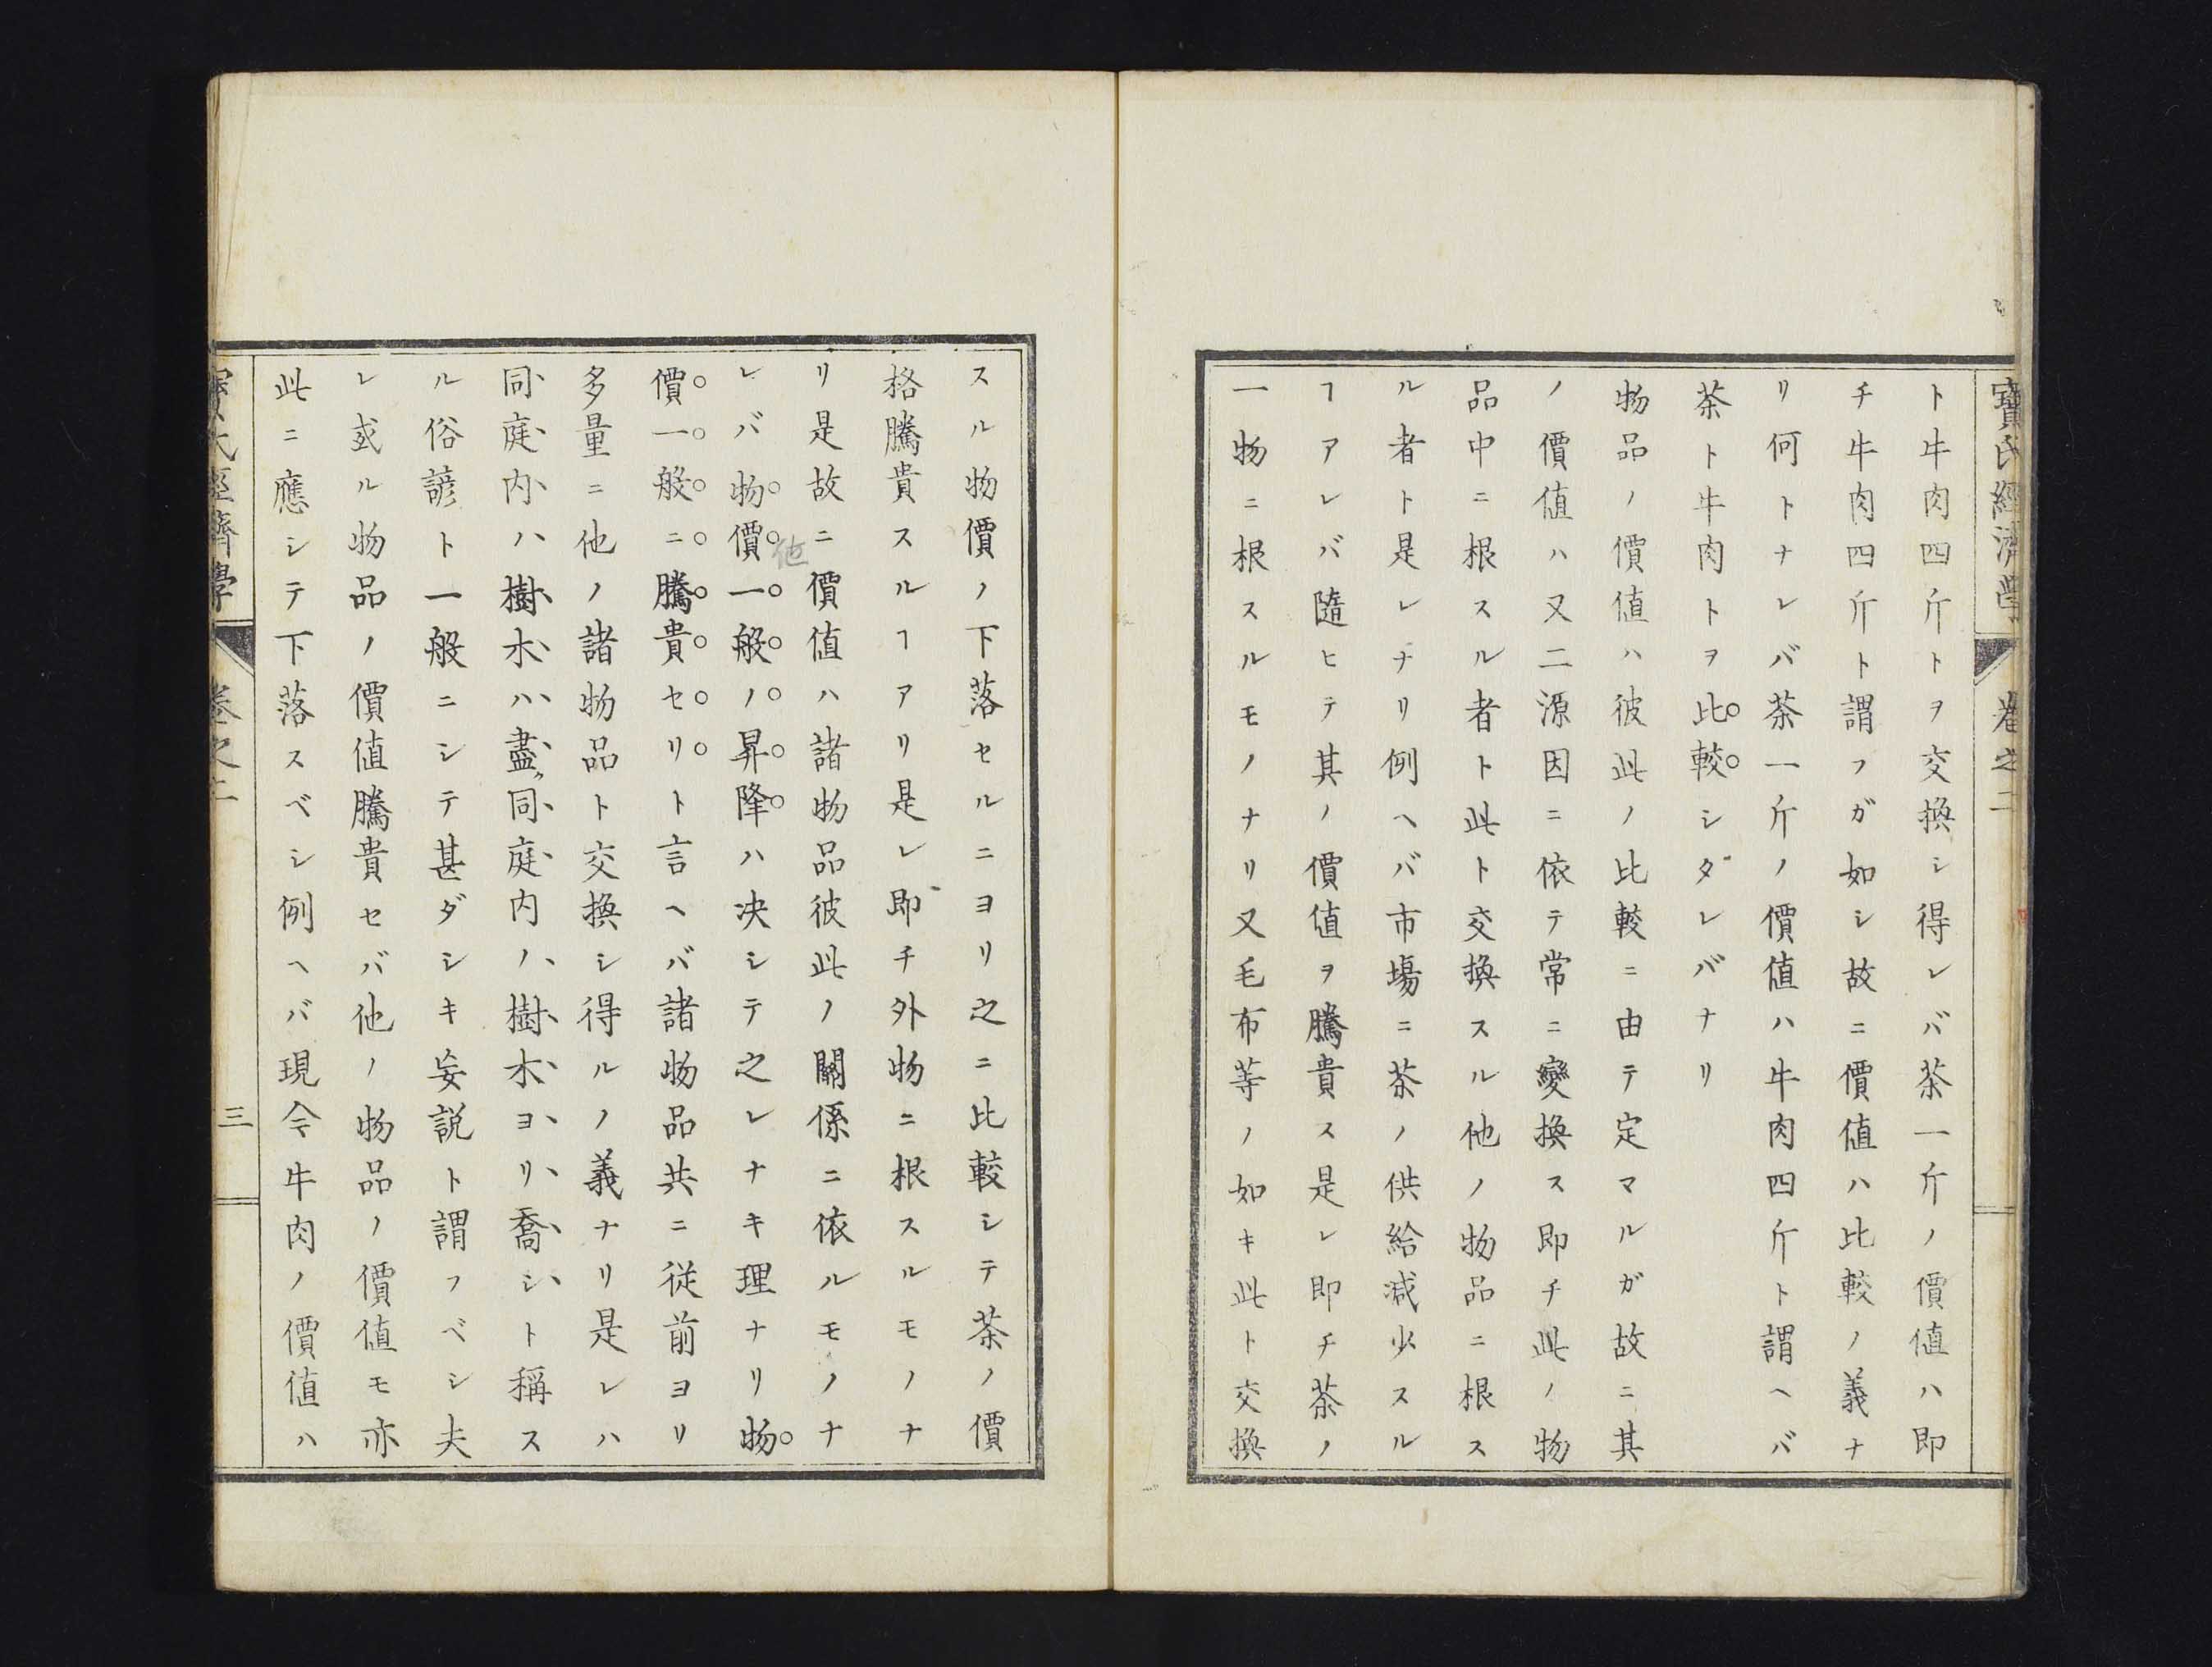 寶氏經濟學 卷之二
ト牛肉四斤トヲ交換シ得レバ茶一斤ノ價値ハ即
チ牛肉四斤ト謂フガ如シ故ニ價値ハ比較ノ義ナ
リ何トナレバ茶一斤ノ價値ハ牛肉四斤ト謂ヘバ
茶ト牛肉トヲ比較シタレバナリ
物品ノ價値ハ彼此ノ比較ニ由テ定マルガ故ニ其
ノ價値ハ又二源因ニ依テ常ニ變換ス即チ此ノ物
品中ニ根スル者ト此ト交換スル他ノ物品ニ根ス
ル者ト是レナリ例ヘバ市場ニ茶ノ供給減少スル
ヿアレバ隨ヒテ其ノ價値ヲ騰貴ス是レ即チ茶ノ
一物ニ根スルモノナリ又毛布等ノ如キ此ト交換
スル物價ノ下落セルニヨリ之ニ比較シテ茶ノ價
格騰貴スルヿアリ是レ即チ外物ニ根スルモノナ
リ是故ニ價値ハ諸物品彼此ノ關係ニ依ルモノナ
他
レバ物價一般ノ昇降ハ决シテ之レナキ理ナリ物
價一般ニ騰貴セリト言ヘバ諸物品共ニ従前ヨリ
多量ニ他ノ諸物品ト交換シ得ルノ義ナリ是レハ
同庭内ハ樹木ハ盡同庭内ノ樹木ヨリ喬シト稱ス
ル俗諺ト一般ニシテ甚ダシキ妄説ト謂フベシ夫
レ或ル物品ノ價値騰貴セバ他ノ物品ノ價値モ亦
此ニ應シテ下落スベシ例ヘバ現今牛肉ノ價値ハ
寶氏經濟學 卷之二 三